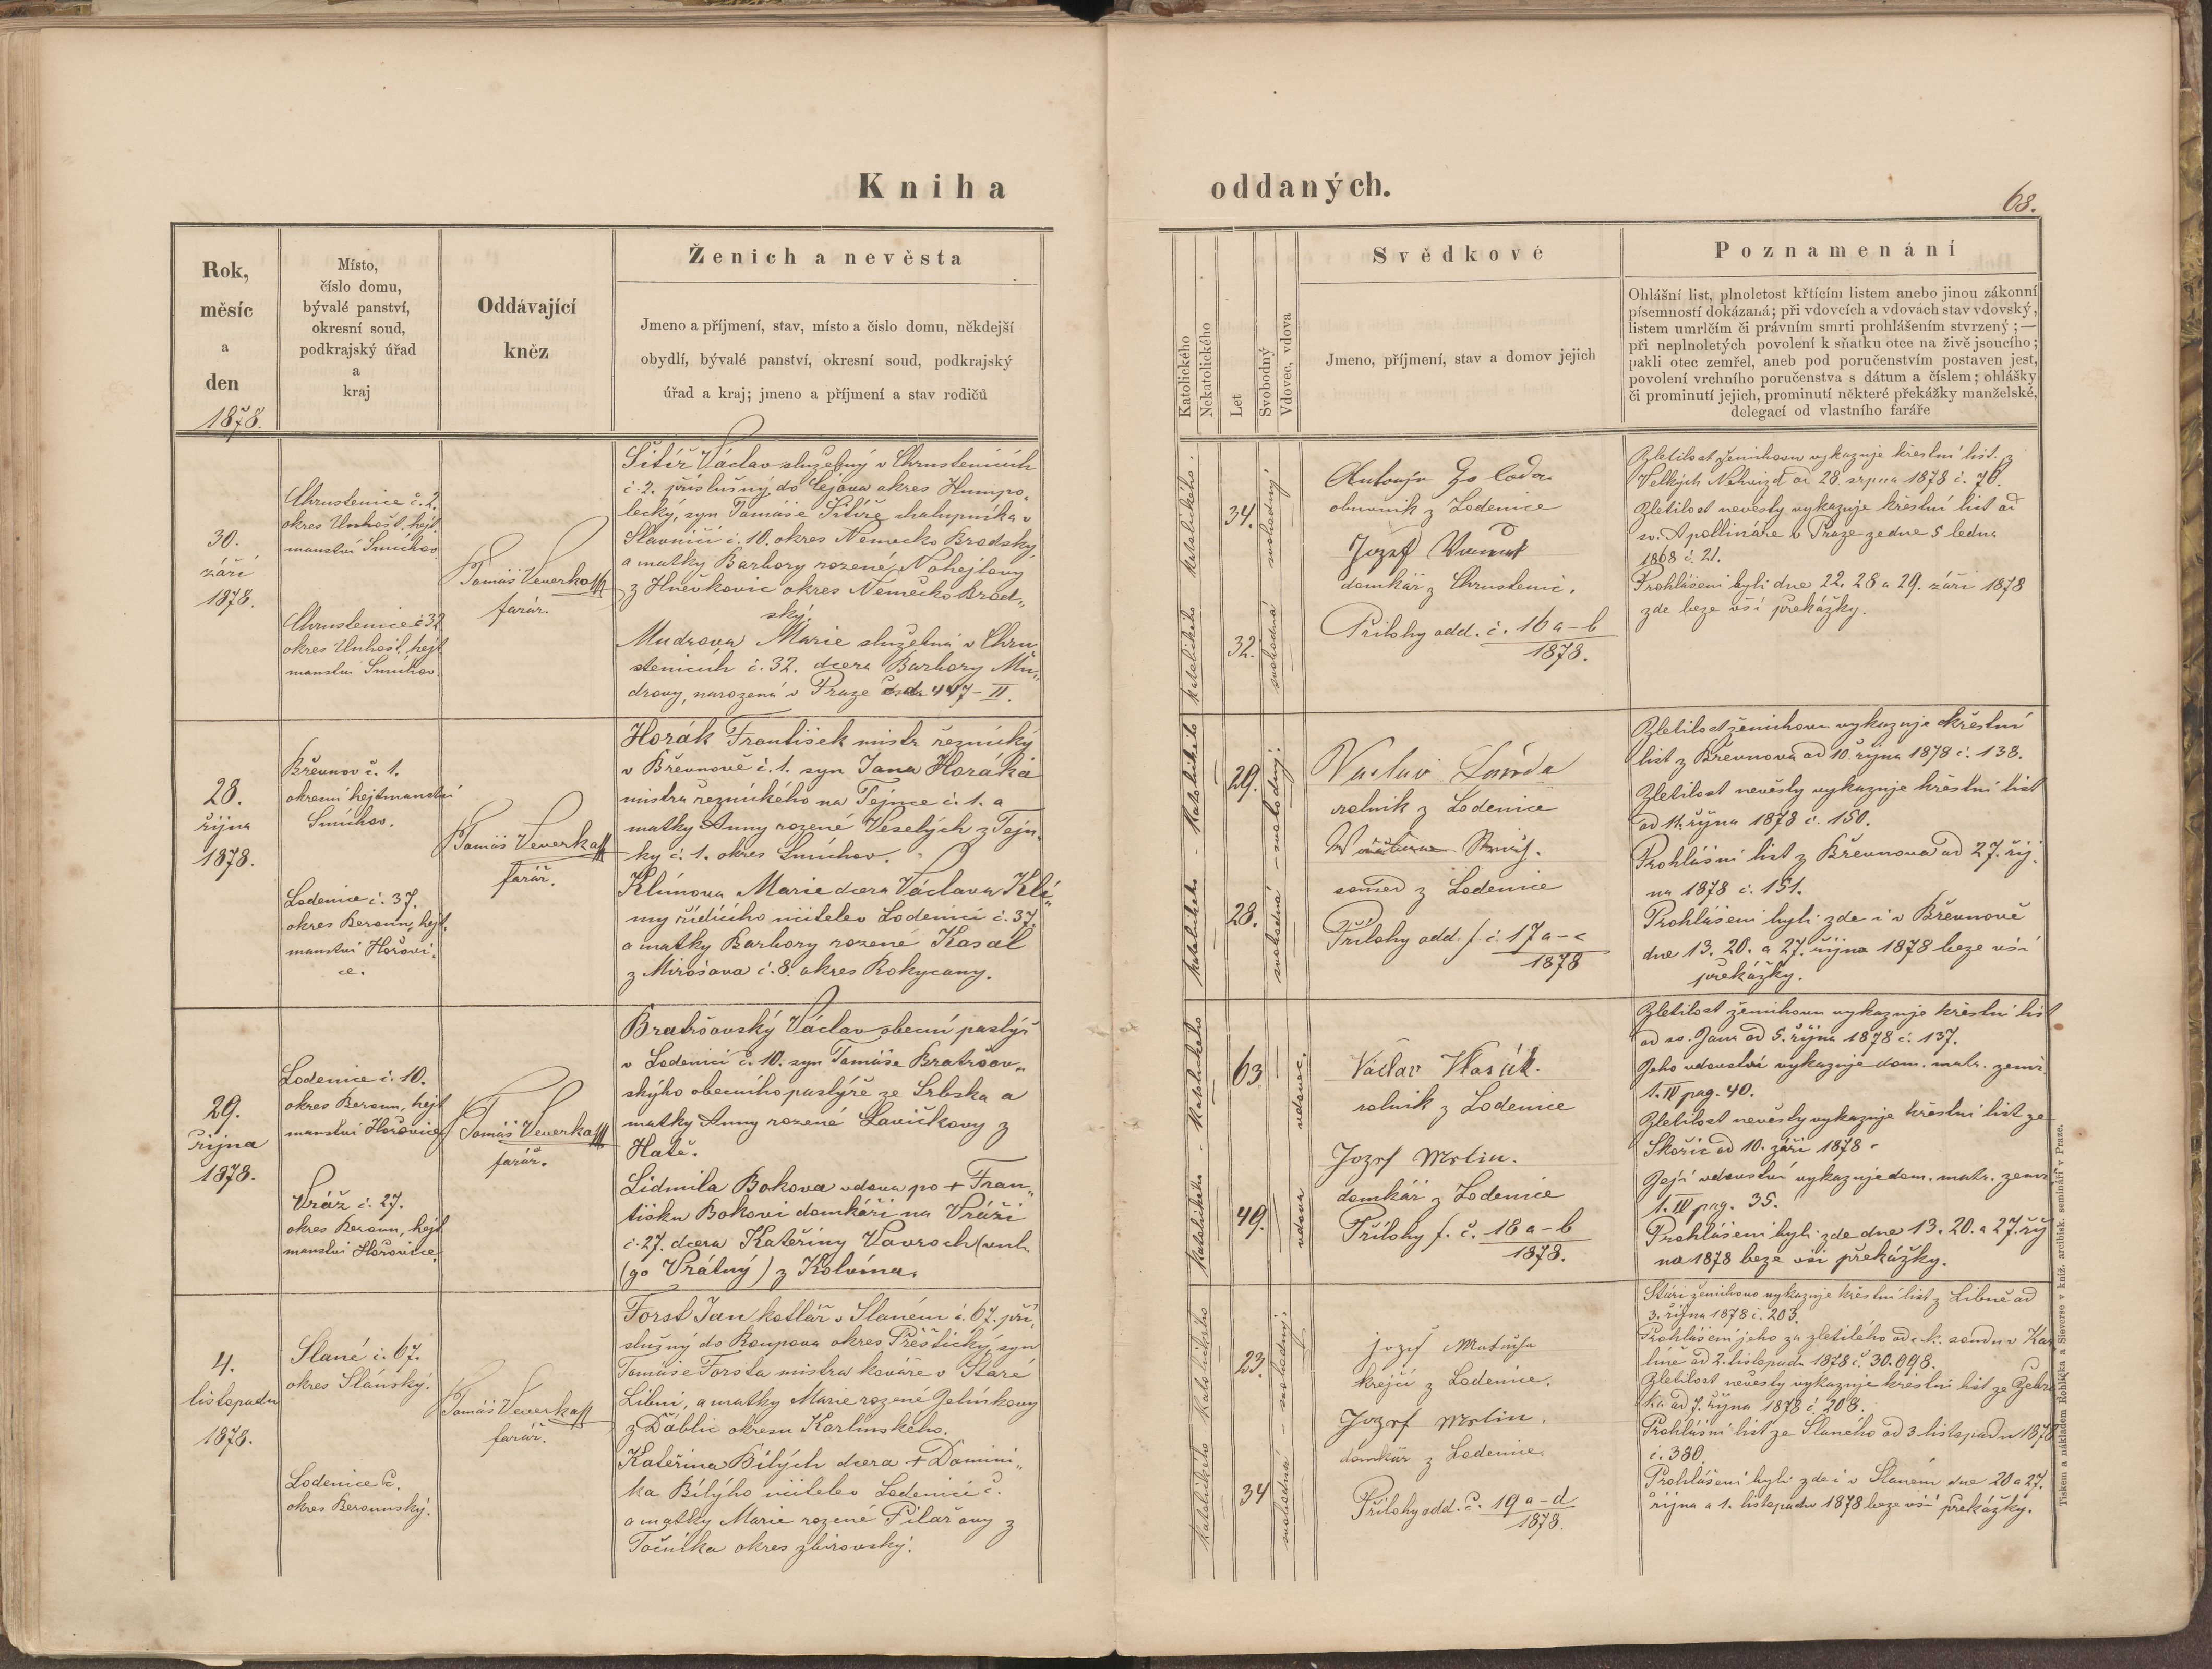 Kniha oddaných.
68.
Rok,
měsíc
a
den
1878.
Místo,
číslo domu,
bývalé panství,
okresní soud,
podkrajský úřad
a
kraj
Oddávající
kněz
Ženich a nevěsta
Jmeno a příjmení, stav, místo a číslo domu, někdejší
obydlí, bývalé panství, okresní soud, podkrajský
úřad a kraj; jmeno a příjmení a stav rodičů
Katolického
Nekatolického
Let
Svobodný
Vdovec, vdova
Svědkové
Jmeno, příjmení, stav a domov jejich
Poznamenání
Ohlášní list, plnoletost křtícím listem anebo jinou zákonní
písemností dokázaná; při vdovcích a vdovách stav vdovský,
listem umrlčím či právním smrti prohlášením stvrzený; —
při neplnoletých povolení k sňatku otce na živě jsoucího;
pakli otec zemřel, aneb pod poručenstvím postaven jest,
povolení vrchního poručenstva s dátum a číslem; ohlášky
či prominutí jejich, prominutí některé překážky manželské,
delegací od vlastního faráře
30.
září
1878.
Chrustenice č. 2.
okres Unhošt, hejt
manství Smíchov
Chrustenice č 32
okres Unhošt, hejt
manství Smíchov.
Tomáš Veverka
farář.
Šitíř Václav služebný v Chrustenicích
č. 2. příslušný do okres Humpo„
lecký, syn Tomáše Šitíře chalupníka v
Slavníči č. 10. okres Německo Brodský
a matky Barbory rozené Nohejlovy
z Hněvkovic okres Německo Brod„
ský.
Mudrova Marie služebná v Chru
stenicích č. 32. dcera Barbory Mu„
drovy, narozená v Praze 447-II.
katolického. katolického
34.
svobodný
katolického katolického
32.
svobodná
Antonín
z Lodenice
Jozef
domkář z Chrustenic.
Přílohy odd. č. 16 a-b
1878.
Zletilost ženichovu vykazuje křestní list z
Velkých Nehvizd od 28. srpna 1878 č. 70.
Zletilost nevěsty vykazuje křestní list od
sv. Apollináře v Praze ze dne 5 ledna
1868 č. 21.
Prohlášeni byli dne 22. 28 a 29. září 1878
zde beze vší překážky.
28.
října
1878.
Břevnov č. 1.
okresní hejtmanství
Smíchov.
Lodenice č. 37.
okres Beroun, hejt„
manství Hořovi„
ce.
Tomáš Veverka
farář.
Horák František mistr řeznický
v Břevnově č. 1. syn Jana Horáka
mistra řeznického na Tejnce č. 1. a
matky Anny rozené Veselých z Tejn„
ky č. 1. okres Smíchov.
Klímova Marie dcera Václava Klí„
my řídícího učitele v Lodenici č. 37.
a matky Barbory rozené Kasal
z Mirošova č. 8. okres Rokycany.
katolického - katolického
29.
svobodný.
28.
svobodná
Václav
rolník z Lodenice
soused z Lodenice
Přílohy odd. f. č. 17 a-c
1878
Zletilost ženichovu vykazuje křestní
list z Břevnova od 10. října 1878 č. 138.
Zletilost nevěsty vykazuje křestní list
od 11. října 1878 č. 150.
Prohlášní list z Břevnova od 27. říj„
na 1878 č. 151.
Prohlášeni byli zde i v Břevnově
dne 13. 20. a 27. října 1878 beze vší
překážky.
29.
října
1878.
Lodenice č. 10.
okres Beroun, hejt
manství Hořovice
Vráž č. 27.
okres Beroun, hejt
manství Hořovice.
Tomáš Veverka
farář.
Bratršovský Václav obecní pastýř
v Lodenici č. 10. syn Tomáše Bratršov„
ského obecního pastýře ze Srbska a
matky Anny rozené Lavičkovy z
Hatě.
Lidmila Bokova vdova po + Fran„
tišku Bokovi domkáři na Vráži
č. 27. dcera Kateřiny Vavroch (vul
go Vrátný) z Kolvína.
katolického - katolického
63.
vdovec.
49.
vdova
Václav Hasík.
rolník z Lodenice
Jozef Mrlin.
domkář z Lodenice
Přílohy f. č. 18 a-b
1878.
Zletilost ženichovu vykazuje křestní list
od sv. Jana od 5. října 1878 č. 137.
Jeho vdovství vykazuje dom. matr. zemř.
t. IV pag. 40.
Zletilost nevěsty vykazuje křestní list ze
Skořic od 10. září 1878
Její vdovství vykazuje dom. matr. zemř
t. IV pag. 35.
Prohlášeni byli zde dne 13. 20. a 27. říj
na 1878 beze vší překážky.
4.
listopadu
1878.
Slané č. 67.
okres Slánský.
Lodenice č.
okres Berounský.
Tomáš Veverka
farář.
Forst Jan kotlář v Slaném č. 67. pří„
slušný do Roupova okres Přeštický, syn
Tomáše Forsta mistra kováře v Staré
Libni, a matky Marie rozené Jelínkovy
z Ďáblic okresu Karlínského.
Kateřina Bílých dcera + Domini„
ka Bílýho učitele v Lodenici č.
a matky Marie rozené Pilařovy z
Točníka okres zbirovský.
katolického katolického
23.
svobodný.
34
svobodná
jozef Matuška
krejčí z Lodenice.
Jozef Mrlin.
domkář z Lodenice.
Přílohy odd. č. 19 a-d
1878.
Stáří ženichovo vykazuje křestní list z Libně od
3. října 1878 č. 203.
Prohlášení jeho za zletilého od c. k. soudu v Kar
líně od 2. listopadu 1878 č. 30.098.
Zletilost nevěsty vykazuje křestní list ze Žebra
ka od 7. října 1878 č. 208.
Prohlášní list ze Slaného od 3 listopadu 1878
č. 380.
Prohlášeni byli zde i v Slaném dne 20 a 27.
října a 1. listopadu 1878 beze vší překážky.
Tiskem a nákladem Rohlíčka a Sieverse v kníž. arcibisk. semináři v Praze.